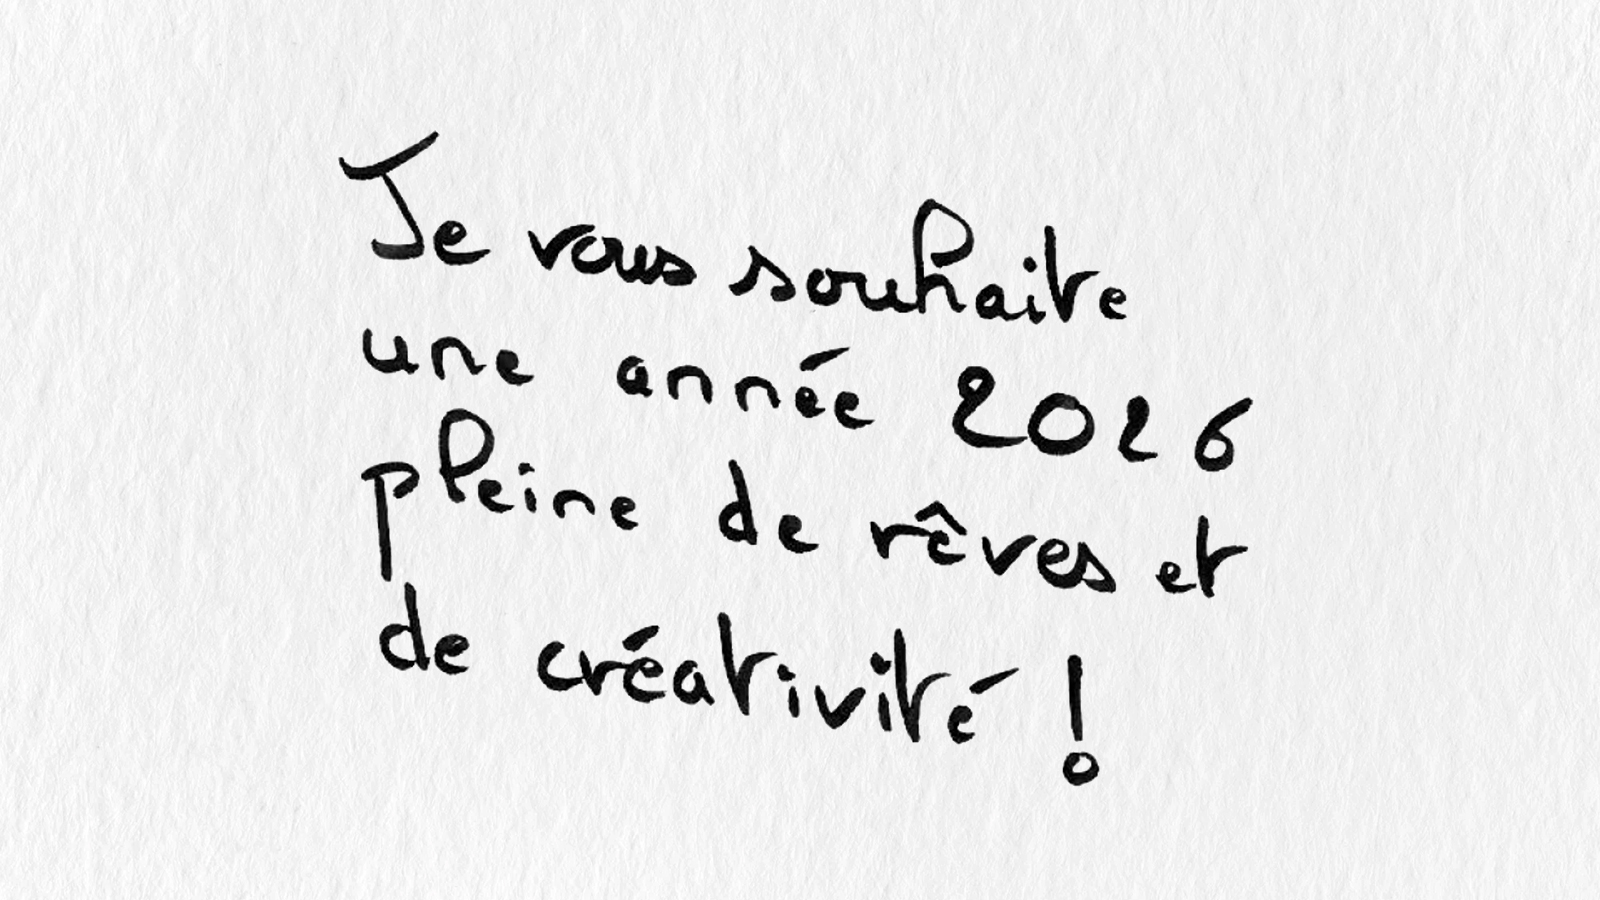 Je vous souhaite
une année 2026
pleine de rêves et
de créativité !